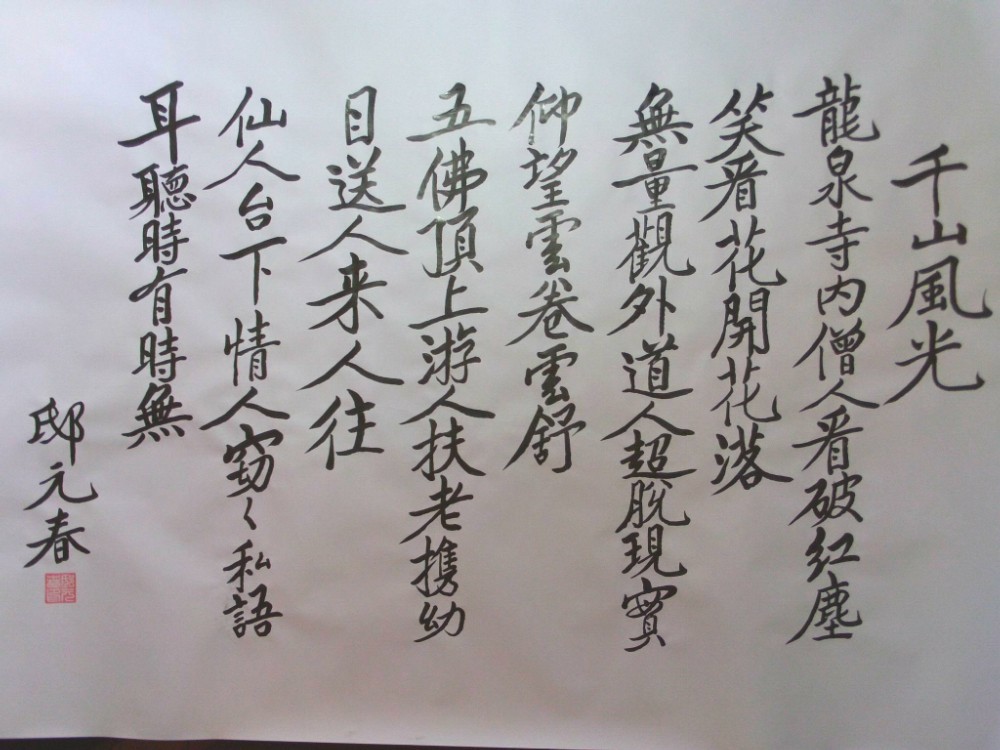 千山風光
龍泉寺内僧人看破红塵
笑看花開花落
無量觀外道人超脱現實
仰望雲卷雲舒
五佛頂上游人扶老携幼
目送人来人往
仙人台下情人窃々私語
耳聽時有時無
邸元春